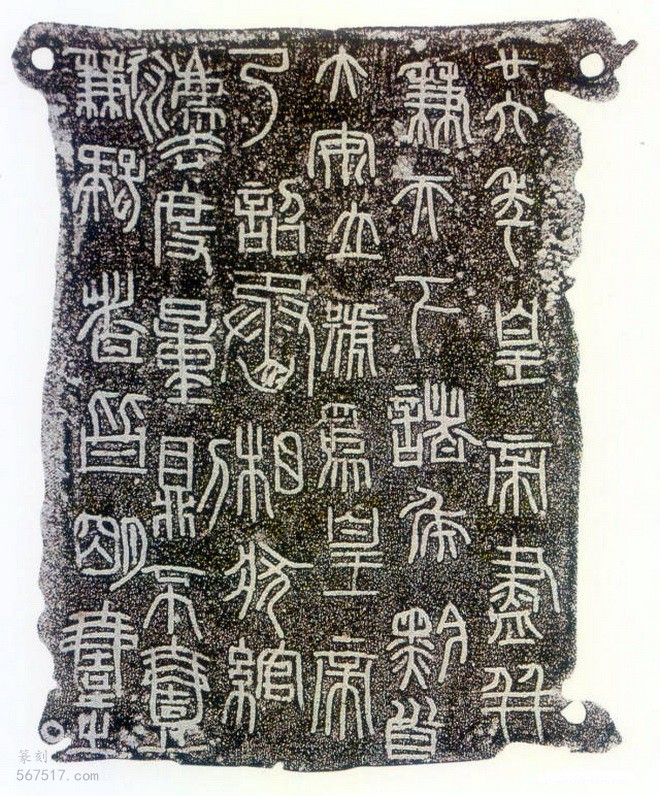 廿六年皇帝盡并
兼天下諸侯黔首
大安立號爲皇帝
乃詔丞相狀綰
灋度量則不壹
歉疑者皆明壹之
篆刻
567517.com